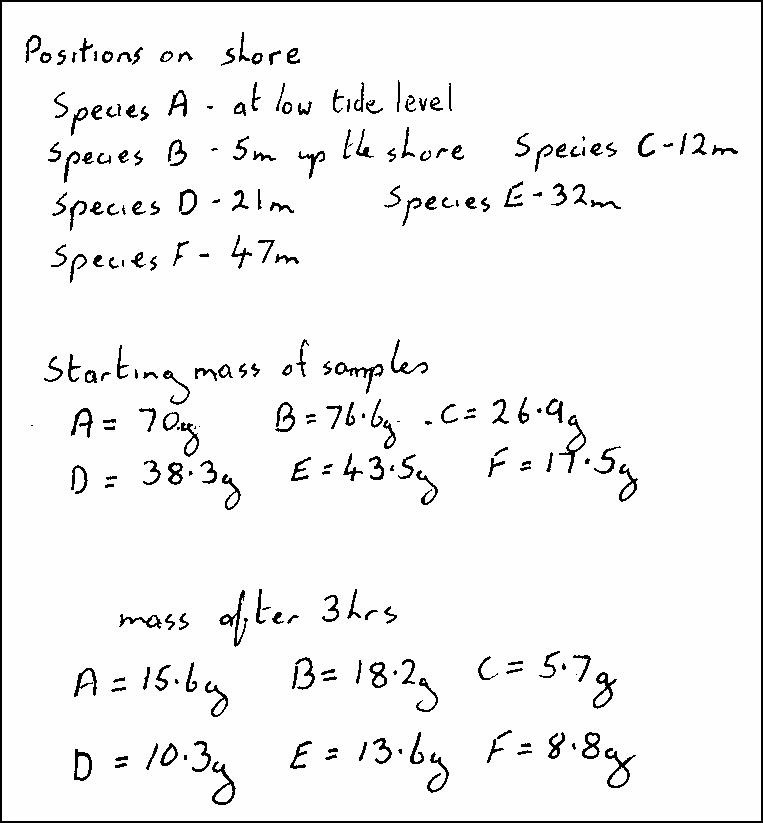 Positions on shore
Species A - at low tide level
Species B - 5m up the shore Species C-12m
Species D - 21m Species E - 32m
Species F - 47m
Starting mass of samples
A = 70g B = 76.6g C = 26.9g
D = 38.3g E = 43.5g F = 17.5g
mass after 3hrs
A = 15.6g B = 18.2g C = 5.7g
D = 10.3g E = 13.6g F = 8.8g